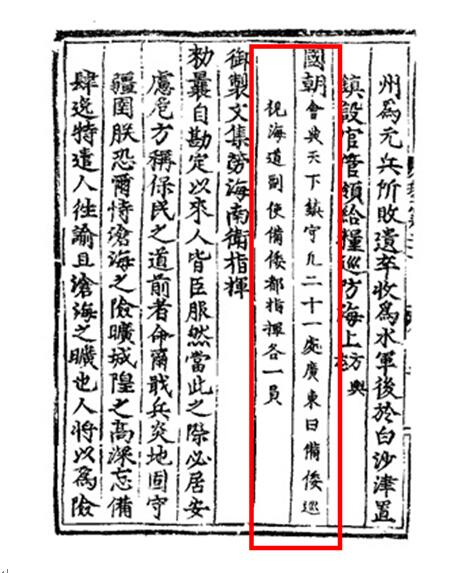 州為元兵所敗遺卒收為水軍後於白沙津置
鎮設官管領給糧巡防海上方輿
國朝會典天下鎮守凡二十一處廣東曰備倭巡
視海道副使備倭都指揮各一員
御製文集勞海南衛指揮
勑曩自勘定以來人皆臣服然當此之際必居安
慮危方稱保民之道前者命爾戢兵炎地固守
疆圉朕恐爾恃滄海之險曠城隍之高深忘備
肆逸特遣人往諭且滄海之曠也人將以為險